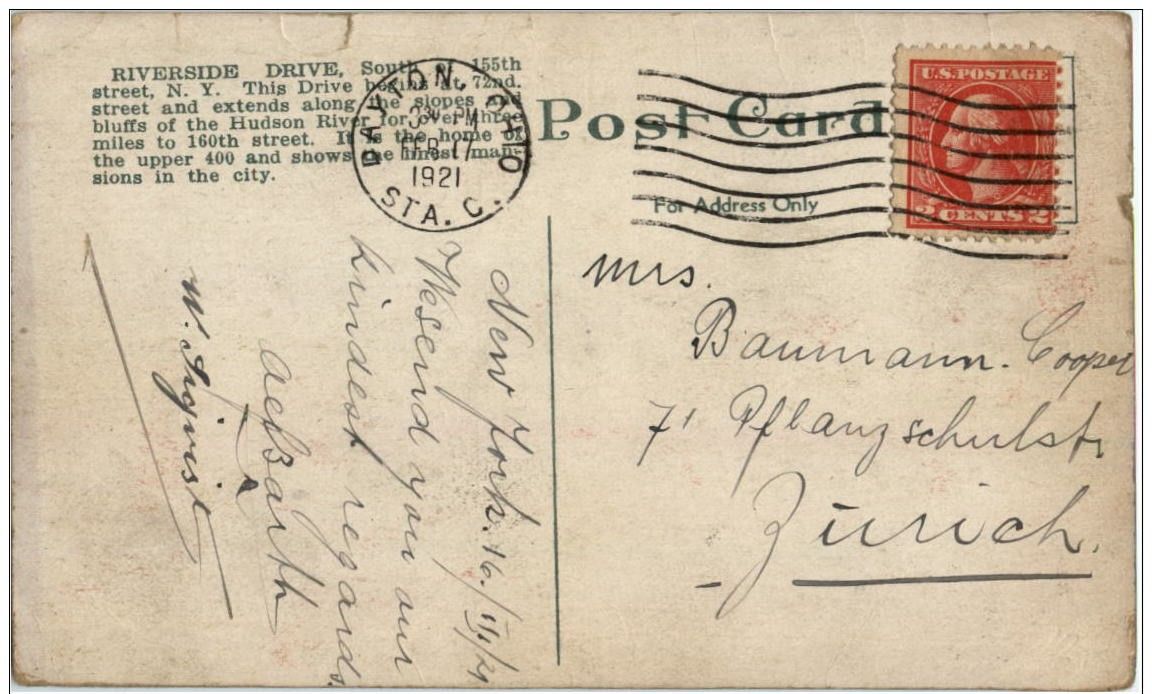 RIVERSIDE DRIVE, South of 155th
street, N. Y. This Drive begins at 72nd.
street and extends along the slopes and
bluffs of the Hudson River for over three
miles to 160th street. It is the home of
the upper 400 and shows the finest man-
sions in the city.
DAYTON, OHIO
3 30 PM
FEB 17
1921
STA. C.
Post Card
For Address Only
U.S. POSTAGE
2 CENTS 2
New York. 16./II/21
We send you our
kindest regards.
Barth
W.
Mrs.
Baumann. Cooper
71 Pflanzschulstr
Zürich.